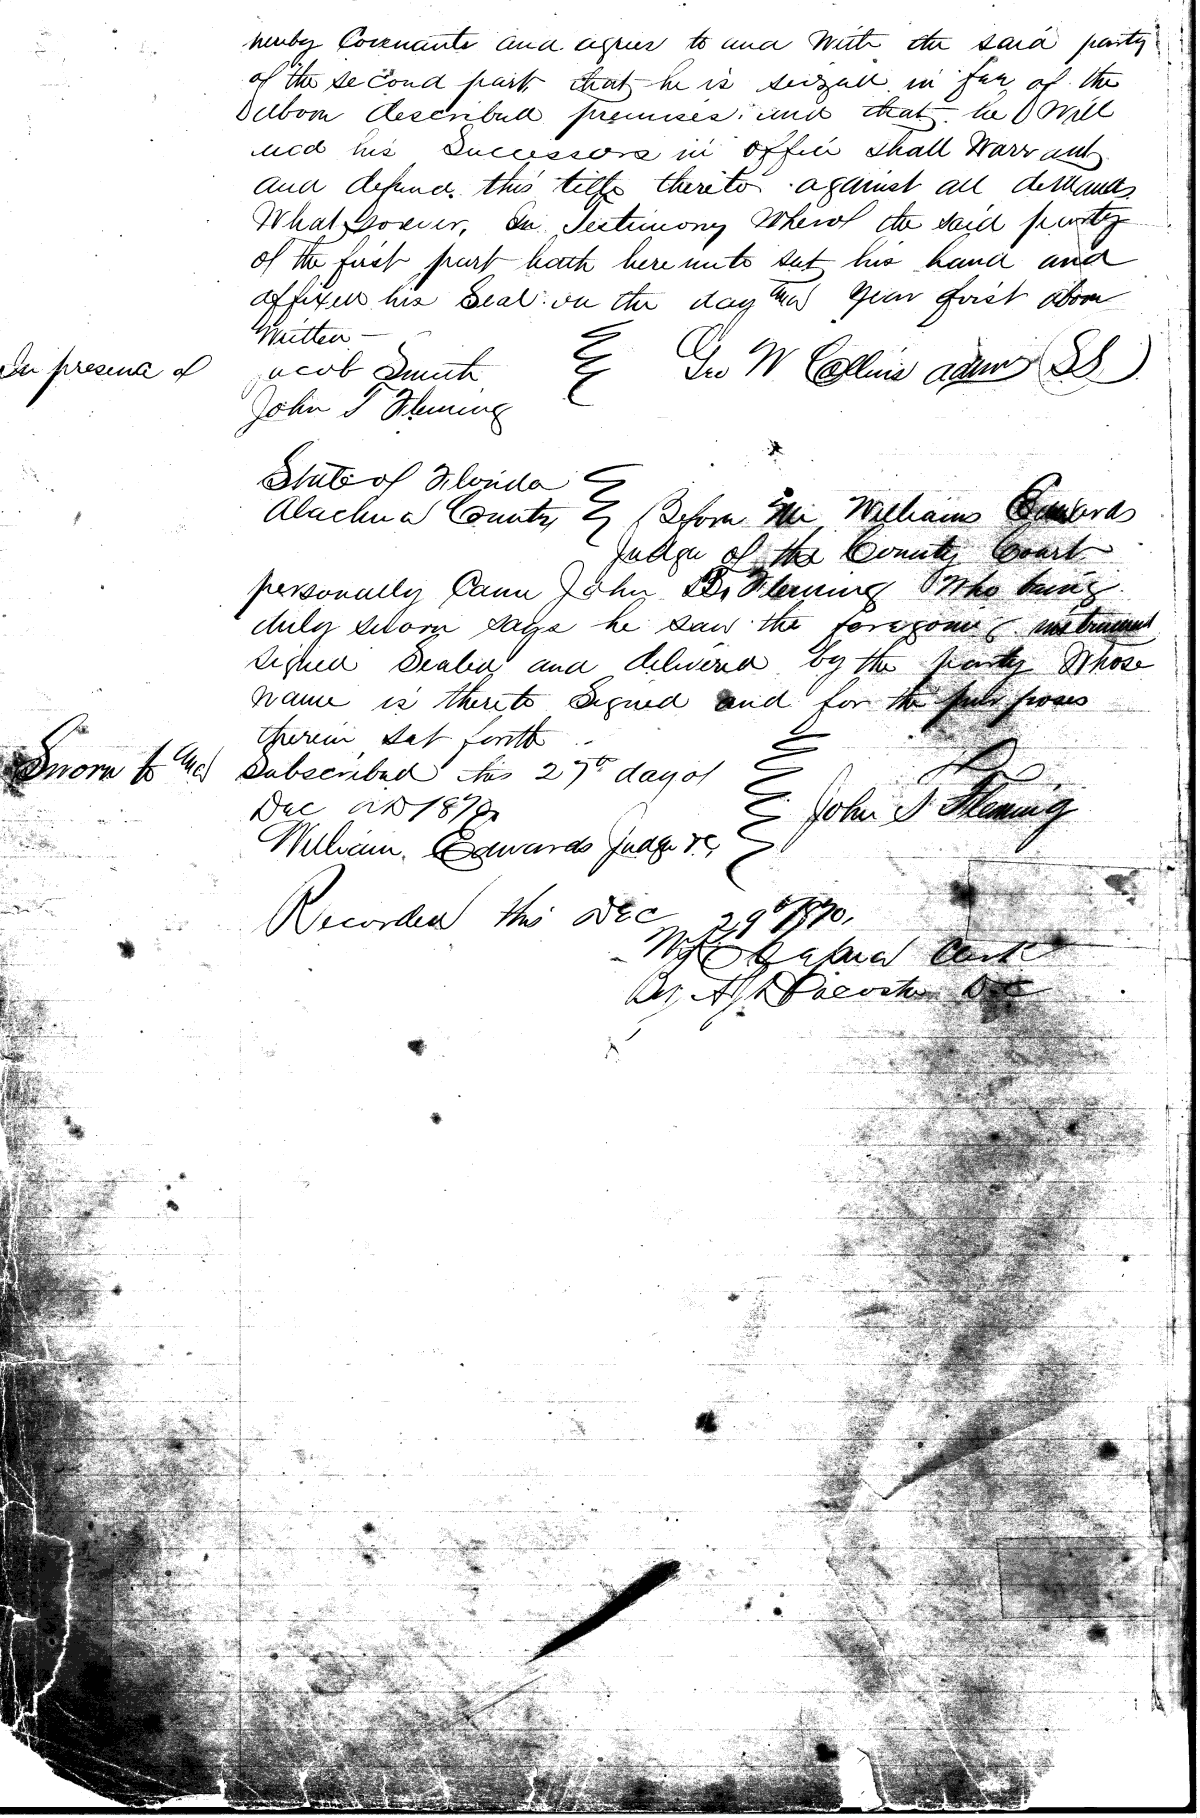 hereby Covenants and agrees to and With the said party
of the second part that he is seized in fee of the
above described premises and that he Will
and his Successors in office shall Warrant
and defend this title thereto against all demands
Whatsoever. In Testimony Whereof the said party
of the first part hath hereunto set his hand and
affixed his Seal on the day and year first above
Written —
In presence of Jacob Smith Geo W Collins admr (SS)
John T Fleming
State of Florida
Alachua County Before Me William Edwards
Judge of the County Court
personally Came John Fleming Who being
duly sworn says he saw the foregoing instrument
signed Sealed and delivered by the party Whose
name is thereto Signed and for the purposes
therein set forth
Sworn to and Subscribed this 27th day of
Dec AD 1870 John T Fleming
William Edwards Judge &c
Recorded this Dec 29th 1870.
Clerk
By DC